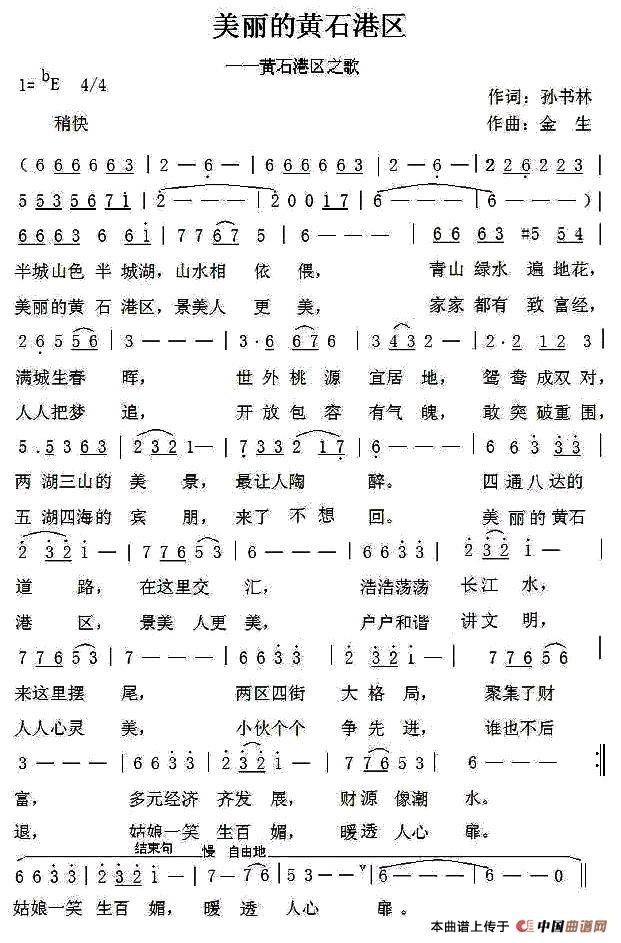 美丽的黄石港区
——黄石港区之歌
1= bE 4/4
作词：孙书林
稍快
作曲：金 生
(6 6 6 6 6 6 3 | 2 — 6 — | 6 6 6 6 6 6 3 | 2 — 6 — | 2 2 2 6 2 2 3 |
5 5 3 5 6 7 1 | 2 — — — | 2 0 0 1 7 | 6 — — — | 6 — — — )|
6 6 6 3 6 6 1 | 7 7 6 7 5 | 6 — — — | 6 6 6 3 #5 5 4 |
半城山色 半 城湖，山水相 依 偎， 青山 绿水 遍 地花，
美丽的黄 石 港区，景美人 更 美， 家家 都有 致 富经，
2 6 5 5 6 | 3 — — — | 3· 6 6 7 6 | 3 4 3 2 — | 2· 2 1 2 3 |
满城生春 晖， 世 外 桃 源 宜居 地， 鸳 鸯 成双 对，
人人把梦 追， 开 放 包 容 有气 魄， 敢 突 破重 围，
5 . 5 3 6 3 | 2 3 2 1— | 7 3 3 2 1 7 | 6 — — — | 6 6 3 3 3 |
两 湖三山的 美 景， 最让人陶 醉。 四 通 八 达的
五 湖四海的 宾 朋， 来了 不 想 回。 美 丽 的黄石
2 3 2 1 — | 7 7 6 5 3 | 6 — — — | 6 6 3 3 | 2 3 2 1 — |
道 路， 在这里交 汇， 浩浩荡荡 长江 水，
港 区， 景美 人更 美， 户户和谐 讲文 明，
7 7 6 5 3 | 7 — — — | 6 6 3 3 | 2 3 2 1 — | 7 7 6 5 5 |
来这里摆 尾， 两区四街 大 格 局， 聚集了财
人人心灵 美， 小伙个个 争 先 进， 谁也不后
3 — — — | 6 6 3 3 | 2 3 2 1 — | 7 7 6 5 3 | 6 — — — :‖
富， 多元经济 齐发 展， 财源 像潮 水。
退， 姑娘一笑 生百 媚， 暖透 人心 扉。
结束句 慢 自由地
6 6 3 3 | 2 3 2 1 — | 7 — 7 6 | 5 3 — — ∨| 6 — — — | 6 — — 0 ‖
姑娘一笑 生百 媚， 暖 透 人心 扉 。
本曲谱上传于 中国曲谱网